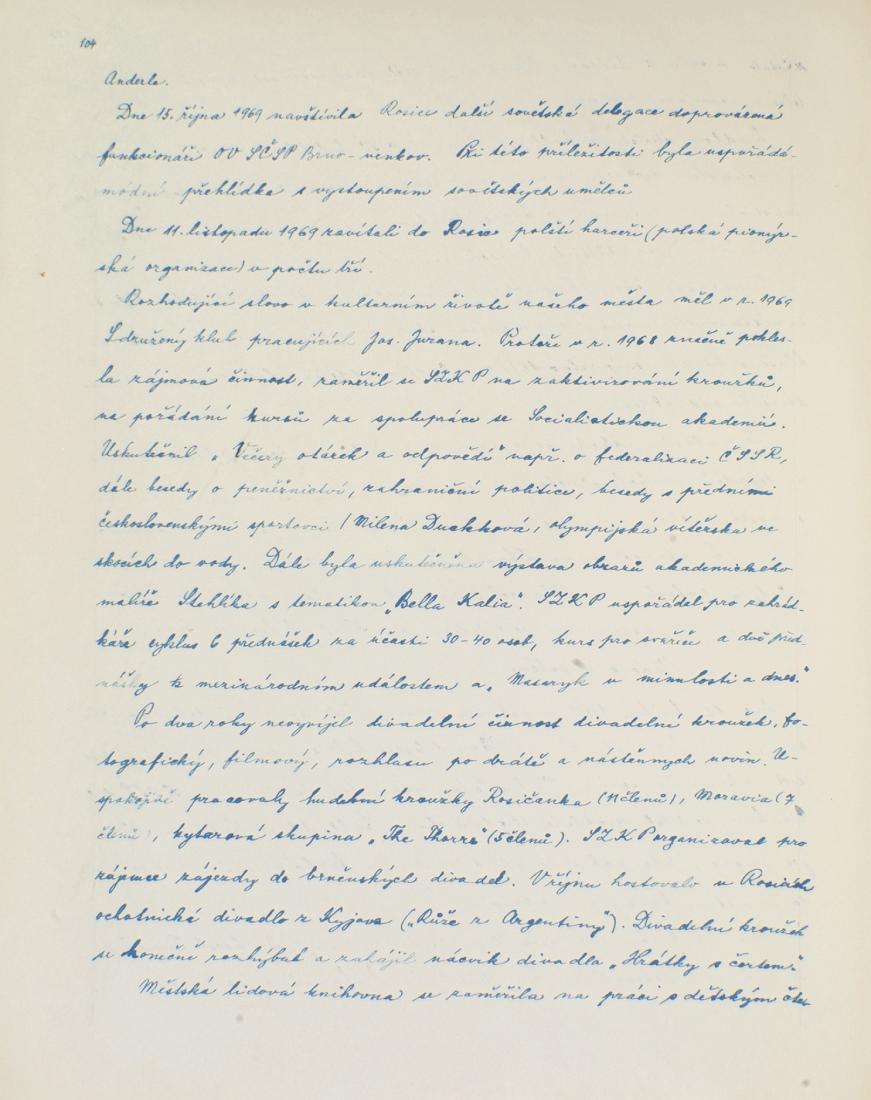 104
Anderle.
Dne 15. října 1969 navštívila Rosice další sovětská delegace doprovázená
funkcionáři OV SČSP Brno-venkov. Při této příležitosti byla uspořádá-
módní přehlídka s vystoupením sovětských umělců
Dne 11. listopadu 1969 zavítali do Rosic polští harceři (polská pionýr-
ská organizace) v počtu tří.
Rozhodující slovo v kulturním životě našeho města měl v r. 1969
Sdružený klub pracujících Jos. Jurana. Protože v r. 1968 značně pokles-
la zájmová činnost, zaměřil se SZK P na zaktivizování kroužků,
na pořádání kursů za spolupráce se Socialistickou akademií.
Uskutečnil „Večery otázek a odpovědí" např. o federalizaci ČSSR,
dále besedy o peněžnictví, zahraniční politice, besedy s předními
československými sportovci (Milena Duchková, olympijská vítězska ve
skocích do vody. Dále byla uskutečněna výstava obrazů akademického
malíře Stehlíka s tematikou „Bella Kalia". SZK P uspořádal pro zahrád-
káře cyklus 6 přednášek za účasti 30-40 osob, kurs pro svářeče a dvě před-
nášky k mezinárodním událostem a „Masaryk v minulosti a dnes."
Po dva roky nevyvíjel divadelní činnost divadelní kroužek, fo-
tografický, filmový, rozhlasu po drátě a nástěnných novin. U-
spokojivě pracovaly hudební kroužky Rosičanka (11 členů), Moravia (7
členů), kytarová skupina „The Thorrs" (5 členů). SZK P organizoval pro
zájemce zájezdy do brněnských divadel. V říjnu hostovalo v Rosicích
ochotnické divadlo z Kyjova („Růže z Argentiny"). Divadelní kroužek
se konečně rozhýbal a zahájil nácvik divadla „Hrátky s čertem."
Městská lidová knihovna se zaměřila na práci s dětským čte-